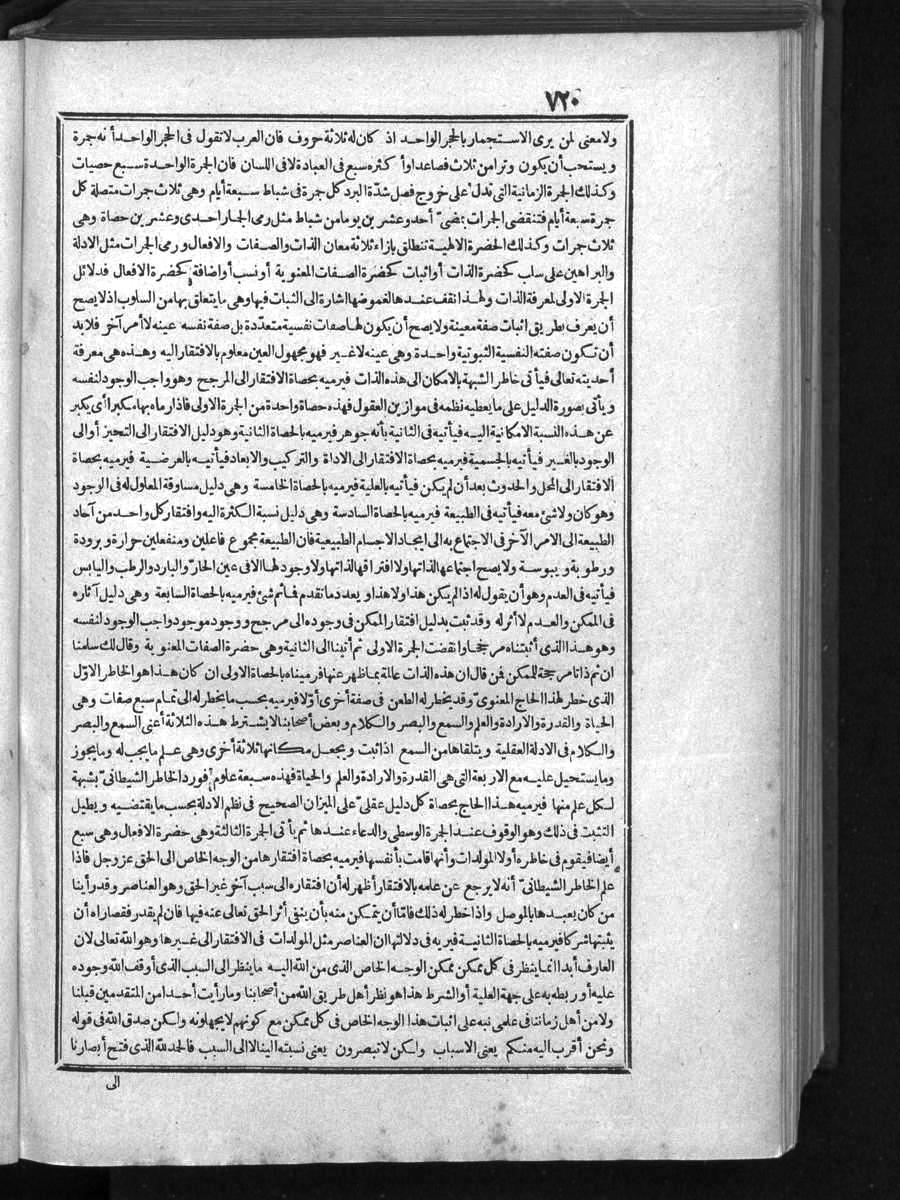 ٧٢٠
ولا معنى لمن يرى الاستجمار بالحجر الواحد اذ كان له ثلاثة حروف فان العرب لا تقول فى الحجر الواحد أنه جمرة
ويستحب أن يكون وترا من ثلاث فصاعدا وأكثره سبع فى العبادة لا فى اللسان فان الجمرة الواحدة سبع حصيات
وكذلك الجمرة الزمانية التى تدل على خروج فصل شدّة البرد كل جمرة فى شباط سبعة أيام وهى ثلاث جمرات متصلة كل
جمرة سبعة أيام فتنقضى الجمرات بمضىّ أحد وعشرين يوما من شباط مثل رمى الجمار احدى وعشرين حصاة وهى
ثلاث جمرات وكذلك الحضرة الالهية تنطلق بازاء ثلاثة معان الذات والصفات والافعال ورمى الجمرات مثل الادلة
والبراهين على سلب كحضرة الذات أو اثبات كحضرة الصفات المعنوية أو نسب أو اضافة كحضرة الافعال فدلائل
الجمرة الاولى لمعرفة الذات ولهذا نقف عندها لغموضها اشارة الى الثبات فيها وهى ما يتعلق بها من السلوب اذ لا يصح
أن يعرف بطريق اثبات صفة معينة ولا يصح أن يكون لها صفات نفسية متعدّدة بل صفة نفسه عينه لا أمر آخر فلا بد
أن تكون صفته النفسية الثبوتية واحدة وهى عينه لا غير فهو مجهول العين معلوم بالافتقار اليه وهذه هى معرفة
أحديته تعالى فيأتى خاطر الشبهة بالامكان الى هذه الذات فيرميه بحصاة الافتقار الى المرجح وهو واجب الوجود لنفسه
ويأتى بصورة الدليل على ما يعطيه نظمه فى موازين العقول فهذه حصاة واحدة من الجمرة الاولى فاذا رماه بها مكبرا أى يكبر
عن هذه النسبة الامكانية اليه فيأتيه فى الثانية بأنه جوهر فيرميه بالحصاة الثانية وهو دليل الافتقار الى التحيز أو الى
الوجود بالغير فيأتيه بالجسمية فيرميه بحصاة الافتقار الى الاداة والتركيب والابعاد فيأتيه بالعرضية فيرميه بحصاة
الافتقار الى المحل والحدوث بعد أن لم يكن فيأتيه بالعلية فيرميه بالحصاة الخامسة وهى دليل مساوقة المعلول له فى الوجود
وهو كان ولا شئ معه فيأتيه فى الطبيعة فيرميه بالحصاة السادسة وهى دليل نسبة الكثرة اليه وافتقار كل واحد من آحاد
الطبيعة الى الامر الآخر فى الاجتماع به الى ايجاد الاجسام الطبيعية فان الطبيعة مجموع فاعلين ومنفعلين حرارة وبرودة
ورطوبة ويبوسة ولا يصح اجتماعها لذاتها ولا افتراقها لذاتها ولا وجود لها الا فى عين الحارّ والبارد والرطب واليابس
فيأتيه فى العدم وهو أن يقول له اذا لم يكن هذا ولا هذا ويعدد ما تقدم فما ثم شئ فيرميه بالحصاة السابعة وهى دليل آثاره
فى الممكن والعدم لا أثر له وقد ثبت بدليل افتقار الممكن فى وجوده الى مرجح ووجود موجود واجب الوجود لنفسه
وهو هذا الذى أثبتناه مرجحا وانقضت الجمرة الاولى ثم أتينا الى الثانية وهى حضرة الصفات المعنوية وقال لك سلمنا
ان ثم ذاتا مرجحة للممكن فمن قال ان هذه الذات عالمة بما ظهر عنها فرميناه بالحصاة الاولى ان كان هذا هو الخاطر الاوّل
الذى خطر لهذا الحاج المعنوى وقد يخطر له الطعن فى صفة أخرى أوّلا فيرميه بحسب ما يخطر له الى تمام سبع صفات وهى
الحياة والقدرة والارادة والعلم والسمع والبصر والكلام وبعض أصحابنا لا يشترط هذه الثلاثة أعنى السمع والبصر
والكلام فى الادلة العقلية ويتلقاها من السمع اذا ثبت ويجعل مكانها ثلاثة أخرى وهى علم ما يجب له وما يجوز
وما يستحيل عليه مع الاربعة التى هى القدرة والارادة والعلم والحياة فهذه سبعة علوم فورد الخاطر الشيطانىّ بشبهة
لكل علم منها فيرميه هذا الحاج بحصاة كل دليل عقلىّ على الميزان الصحيح فى نظم الادلة بحسب ما يقتضيه ويطيل
التثبت فى ذلك وهو الوقوف عند الجمرة الوسطى والدعاء عندها ثم يأتى الجمرة الثالثة وهى حضرة الافعال وهى سبع
أيضا فيقوم فى خاطره أولا المولدات وأنها قامت بأنفسها فيرميه بحصاة افتقارها من الوجه الخاص الى الحق عز وجل فاذا
علم الخاطر الشيطانىّ أنه لا يرجع عن علمه بالافتقار أظهر له أن افتقاره الى سبب آخر غير الحق وهو العناصر وقد رأينا
من كان يعبدها بالموصل واذا خطر له ذلك فامّا أن يتمكن منه بأن ينفى أثر الحق تعالى عنه فيها فان لم يقدر فقصاراه أن
يثبتها شركا فيرميه بالحصاة الثانية فيريه فى دلالتها ان العناصر مثل المولدات فى الافتقار الى غيرها وهو الله تعالى لان
العارف أبدا انما ينظر فى كل ممكن ممكن الوجه الخاص الذى من الله اليه ما ينظر الى السبب الذى أوقف الله وجوده
عليه أو ربطه به على جهة العلية أو الشرط هذا هو نظر أهل طريق الله من أصحابنا وما رأيت أحدا من المتقدمين قبلنا
ولا من أهل زماننا فى علمى نبه على اثبات هذا الوجه الخاص فى كل ممكن مع كونهم لا يجهلونه ولكن صدق الله فى قوله
ونحن أقرب اليه منكم يعنى الاسباب ولكن لا تبصرون يعنى نسبته الينا لا الى السبب فالحمد لله الذى فتح أبصارنا
الى